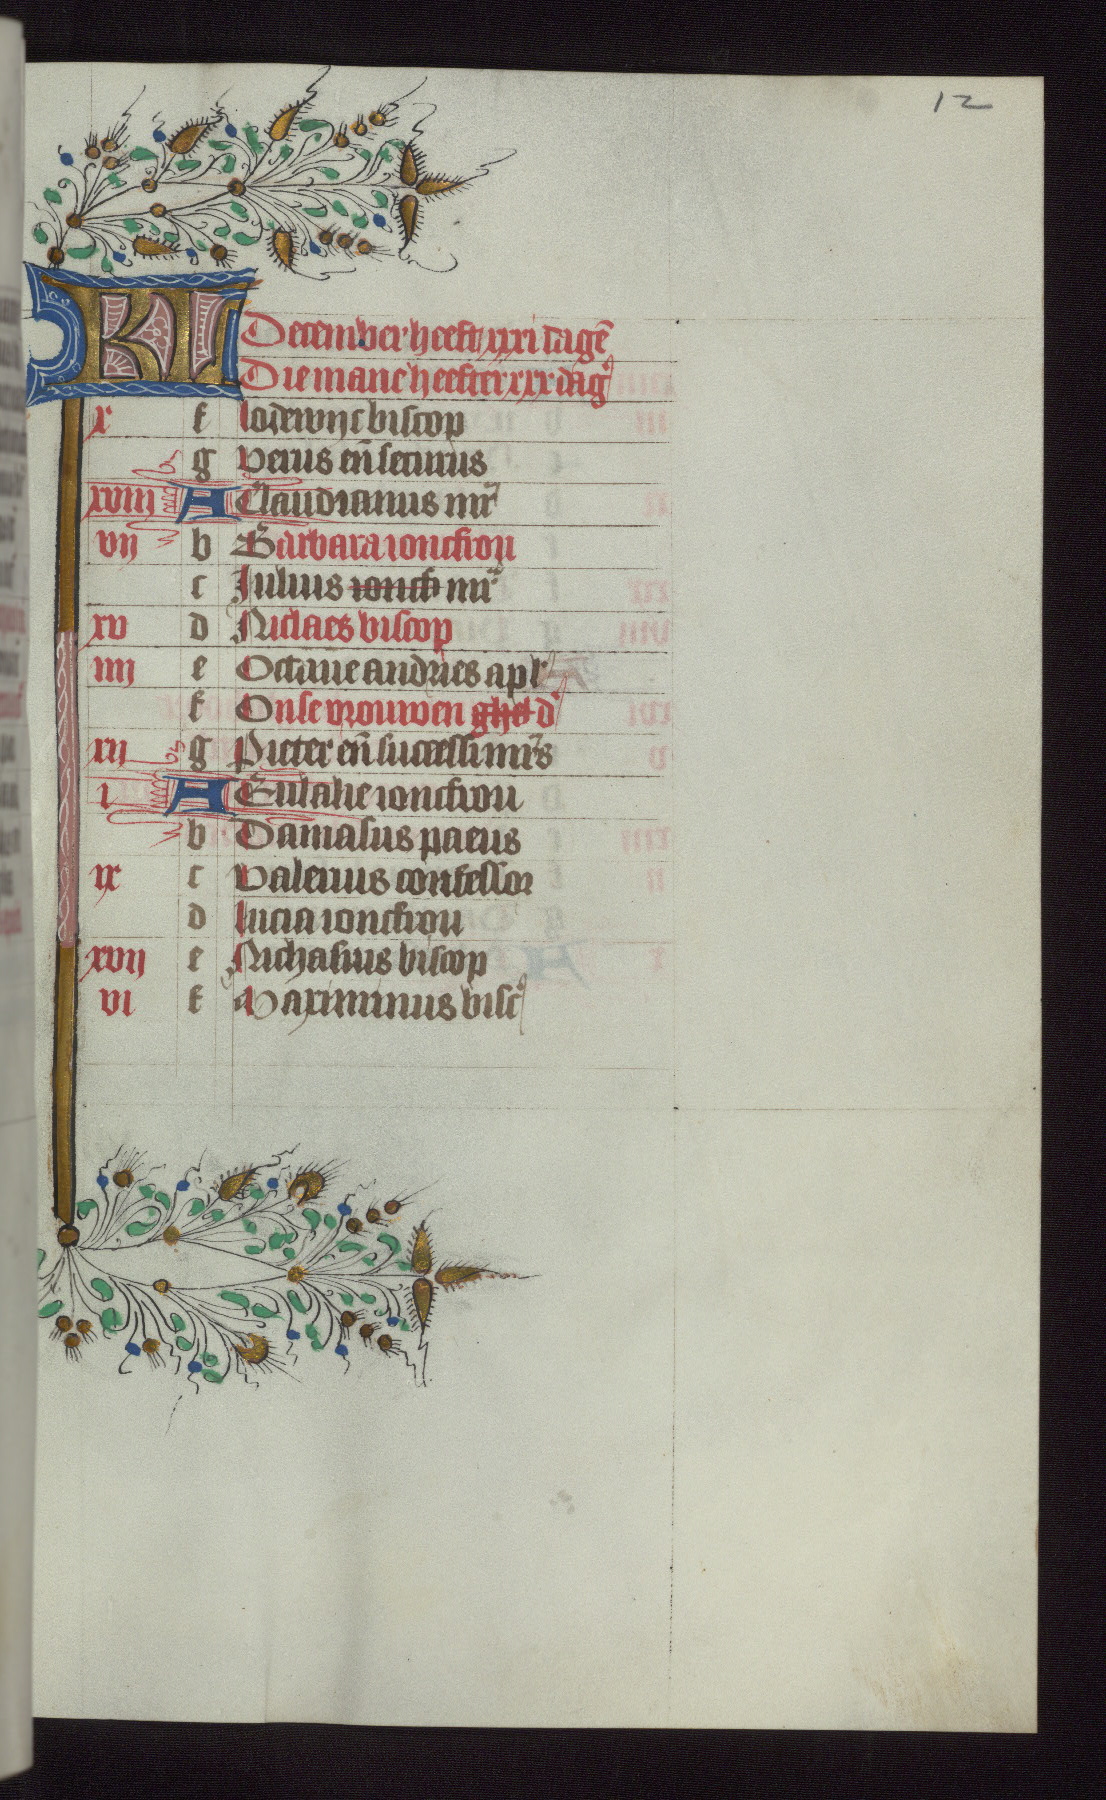 12
KL December heeft xxxi dagē
Die mane heefter xxx dag
x f lodewijc biscop
g Verus eñ securus
xviii A Claudianus mr
vij b Barbara ionckvou
c Julius ionck mr
xv d Niclaes biscop
iiij e Octaue andries apl
f Onse vrouwen ghel d
xij g Pieter eñ successi mrs
i A Eulalie ionckvou
b Damasus paeus
ix c Valerius confessor
d lucia ionckvou
xvij e Nichasius biscop
vi f Maximinus bisc